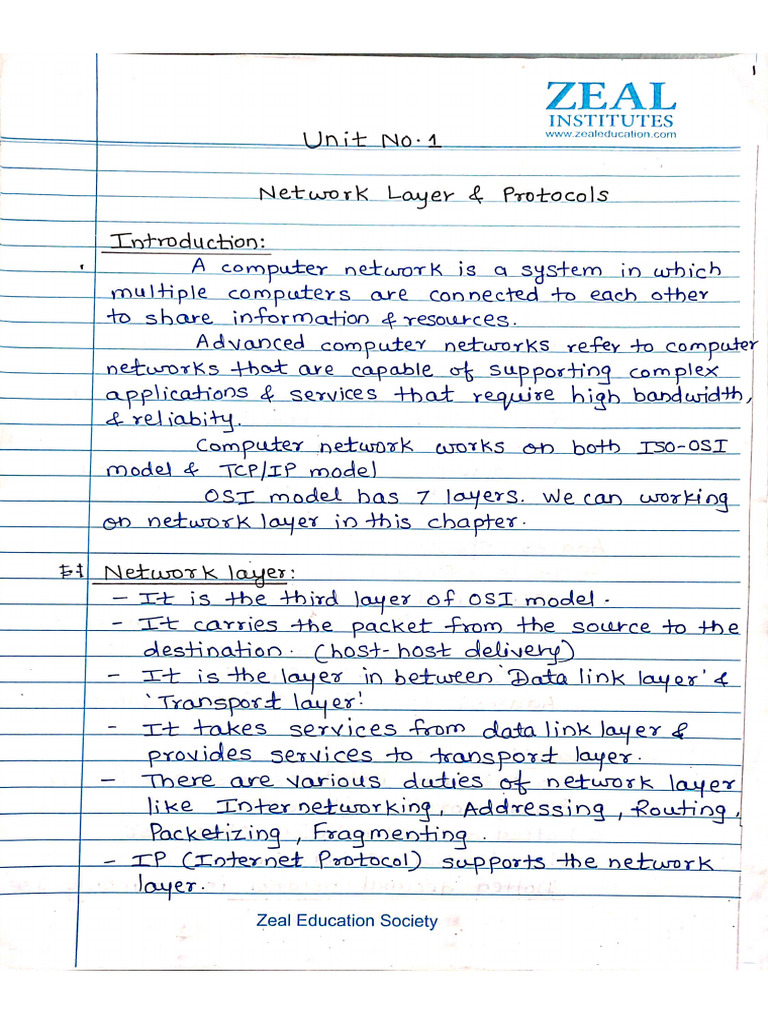 1
ZEAL
INSTITUTES
www.zealeducation.com
Unit No. 1
Network Layer & Protocols
Introduction:
A computer network is a system in which
multiple computers are connected to each other
to share information & resources.
Advanced computer networks refer to computer
networks that are capable of supporting complex
applications & services that require high bandwidth,
& reliabity.
Computer network works on both ISO-OSI
model & TCP/IP model
OSI model has 7 layers. We can working
on network layer in this chapter.
Network layer:
- It is the third layer of OSI model.
- It carries the packet from the source to the
destination. (host-host delivery)
- It is the layer in between 'Data link layer' &
'Transport layer'
- It takes services from data link layer &
provides services to transport layer.
- There are various duties of network layer
like Internetworking, Addressing, Routing,
Packetizing, Fragmenting.
- IP (Internet Protocol) supports the network
layer.
Zeal Education Society